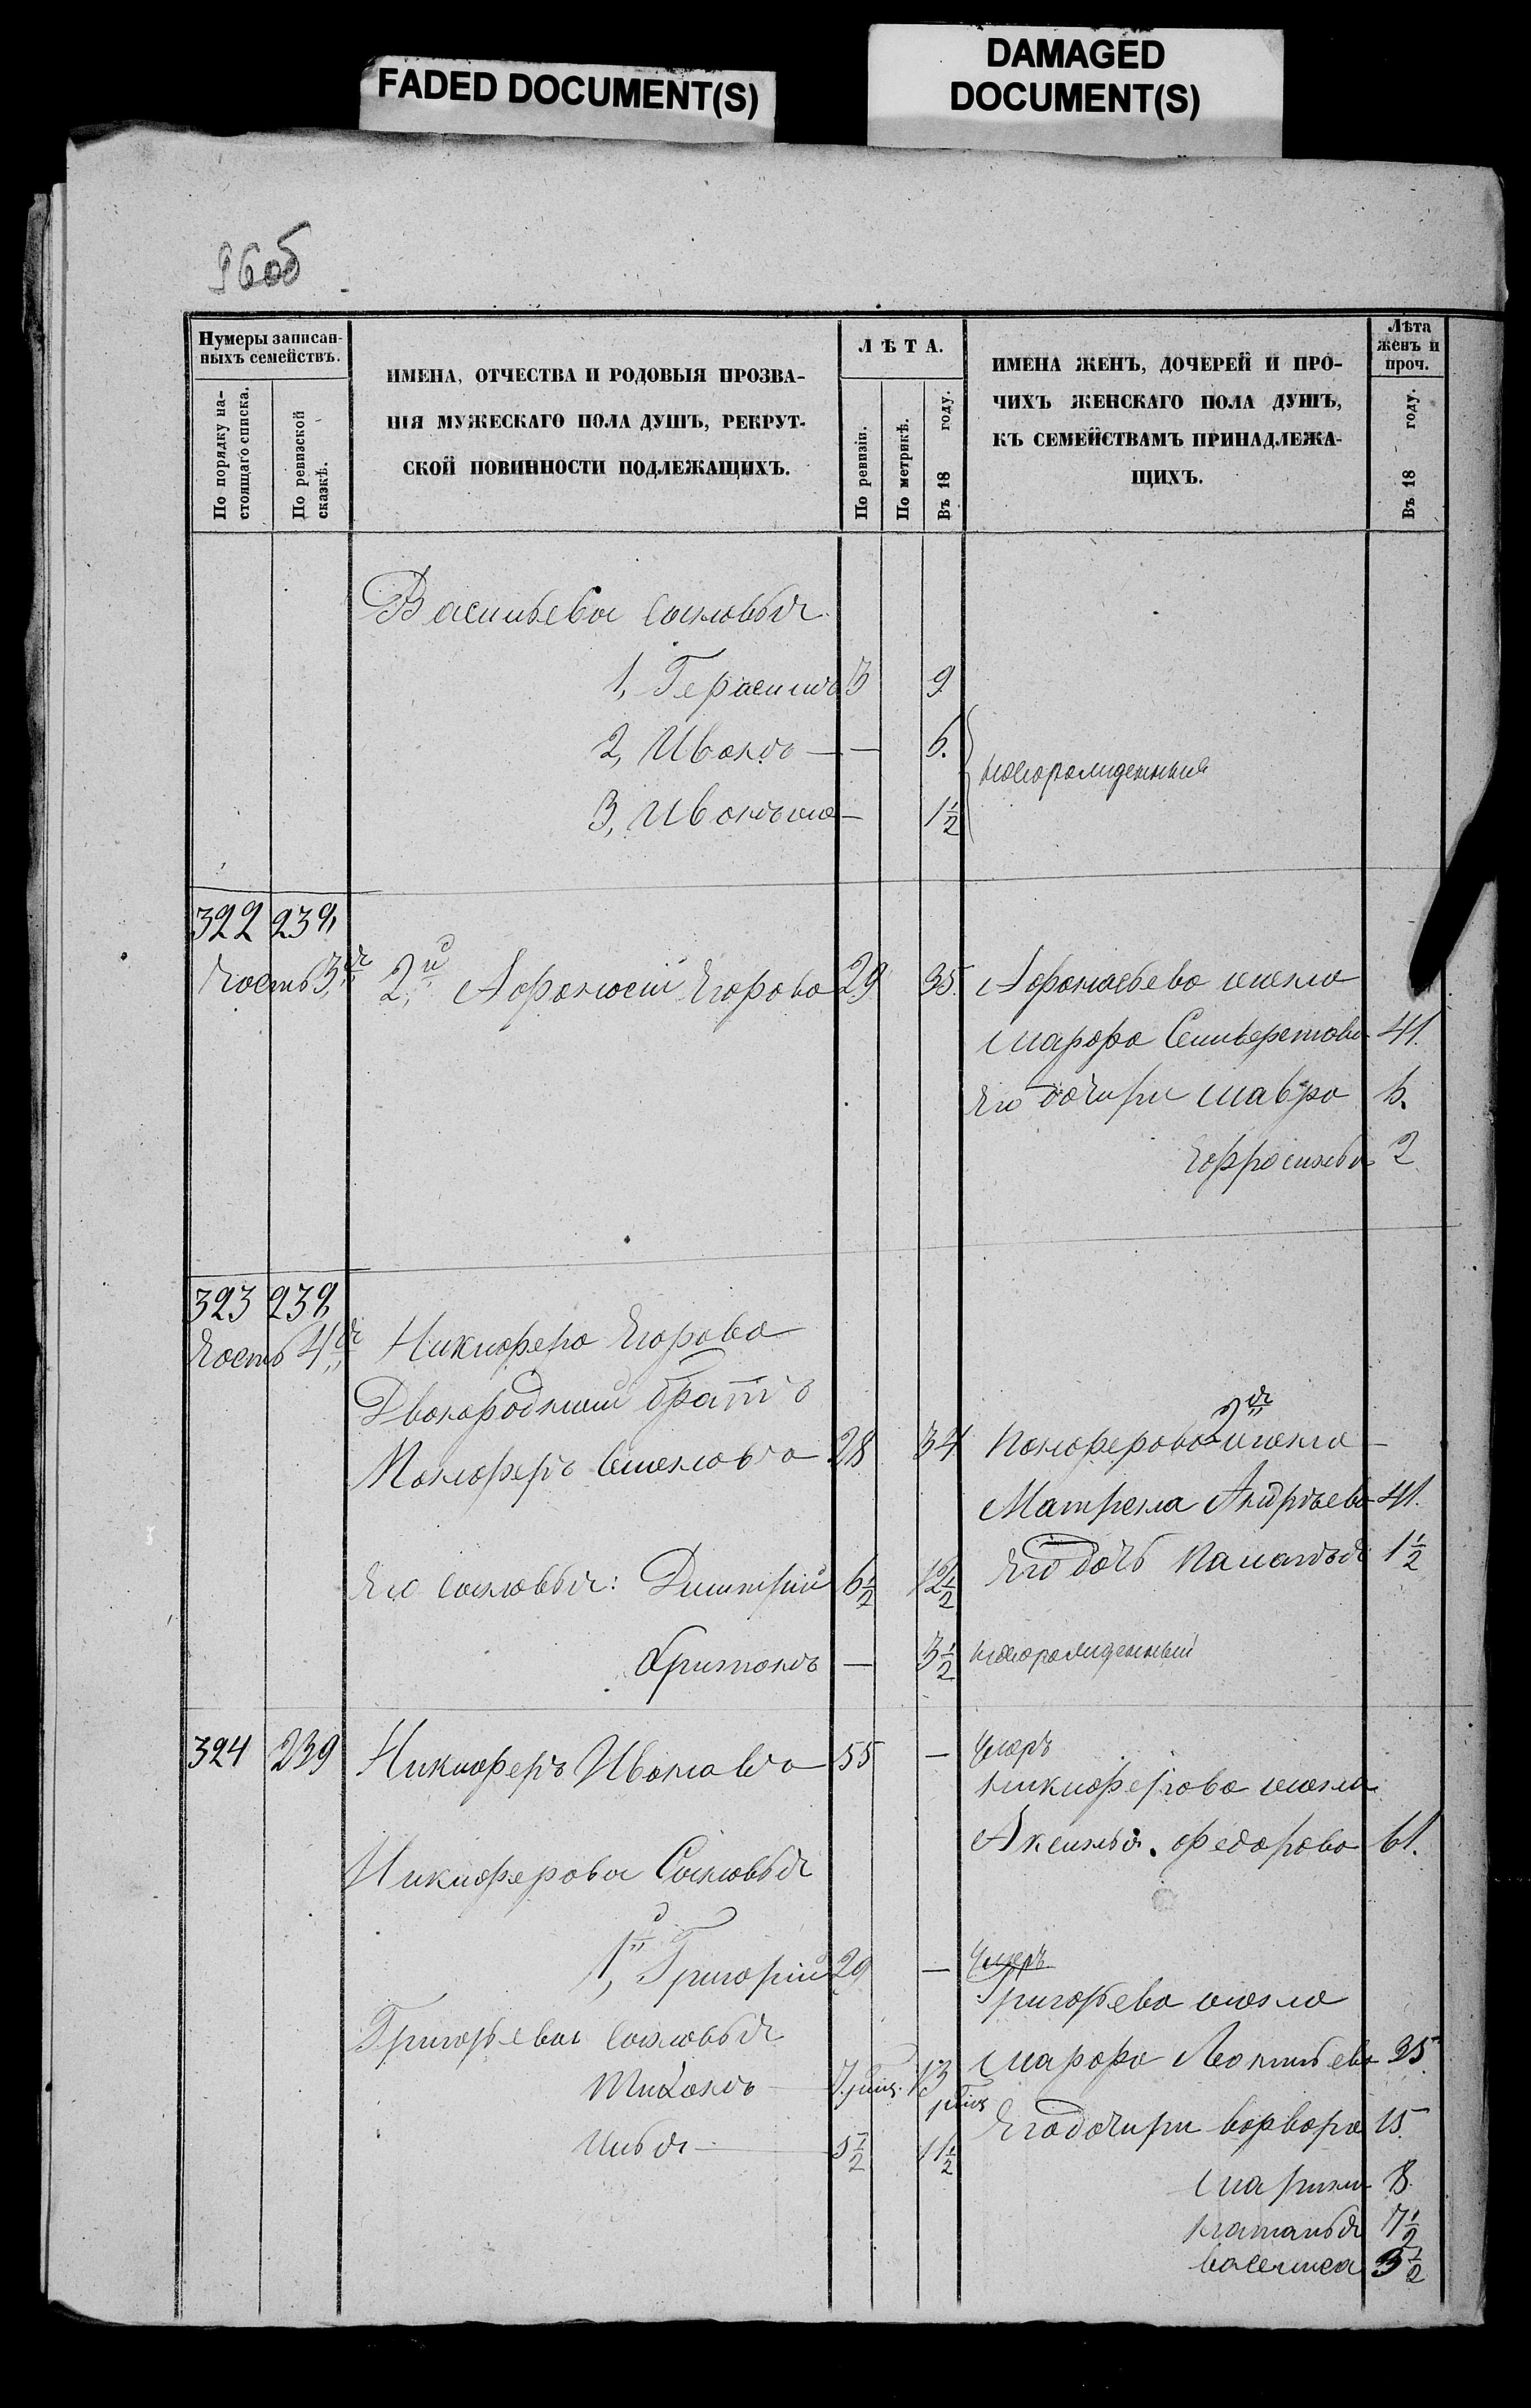 FADED DOCUMENT(S)
DAMAGED
DOCUMENT(S)
96об
Нумеры записан-
ныхъ семействъ.
По порядку на-
стоящаго списка.
По ревизской
сказкѣ.
ИМЕНА, ОТЧЕСТВА И РОДОВЫЯ ПРОЗВА-
НІЯ МУЖЕСКАГО ПОЛА ДУШЪ, РЕКРУТ-
СКОЙ ПОВИННОСТИ ПОДЛЕЖАЩИХЪ.
ЛѢТА.
По ревизіи.
По метрикѣ.
Въ 18 году.
ИМЕНА ЖЕНЪ, ДОЧЕРЕЙ И ПРО-
ЧИХЪ ЖЕНСКАГО ПОЛА ДУШЪ,
КЪ СЕМЕЙСТВАМЪ ПРИНАДЛЕЖА-
ЩИХЪ.
Лѣта
женъ и
проч.
Въ 18 году.
Васильева сыновья
1, Герасимъ 3 9
2, Иванъ — — 6.
новорожденныя
3, Иванъ — 1½
322 239
Часть 3я 2й Афонасій Егорова 29 35. Афонасьева жена
Марфа Селиверстова 41.
Его дочери Мавра 6.
Ефросинья 2
323 239
Часть 4я Никифера Егорова
Двоюродный братъ
Панферъ Семенова 28 34 Панферова 2я жена —
Матрена Андрѣева 41.
Его сыновья: Димитрій 6½ 12½ Его дочь Паладья 1½
— 3½ новорожденный
324 239 Никиферъ Иванова 55 — умеръ
Никиферова жена
Аксинья Федорова 61.
Никиферова Сыновья
1й Григорій 29 — умеръ
Григорьева жена
Григорьева сыновья
Марфа Леонтьева 35
Тихонъ 13
Его дочери Варвара 15.
Илья — 5½ 11½
Марина 8.
Наталья 7½
Василиса 3½